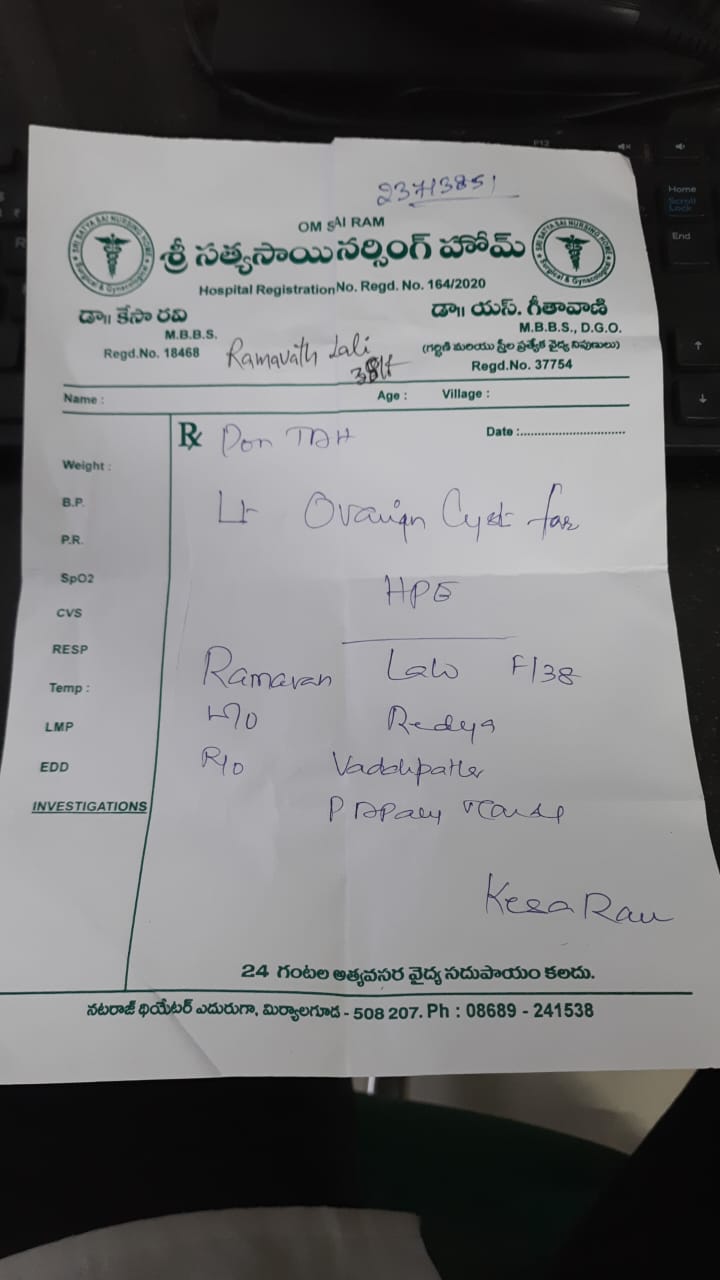 23713851
OM SAI RAM
శ్రీ సత్యసాయి నర్సింగ్ హోమ్
SRI SATYA SAI NURSING HOME
Surgical & Gynecological
Hospital Registration No. Regd. No. 164/2020
డా॥ కేసా రవి
M.B.B.S.
Regd.No. 18468
డా॥ యస్. గీతావాణి
M.B.B.S., D.G.O.
(గర్భిణి మరియు స్త్రీల ప్రత్యేక వైద్య నిపుణులు)
Regd.No. 37754
Ramavath Lali
38/f
Name : Age : Village :
Rx Date :
TAH
Weight :
Lt Ovarian Cyst for
B.P.
P.R.
HPE
SpO2
CVS
RESP
Lali F/38
Temp :
LMP
W/O Redya
EDD
R/O
INVESTIGATIONS
Kesa Ravi
24 గంటల అత్యవసర వైద్య సదుపాయం కలదు.
నటరాజ్ థియేటర్ ఎదురుగా, మిర్యాలగూడ - 508 207. Ph : 08689 - 241538
F12
Home
Scroll
Lock
End